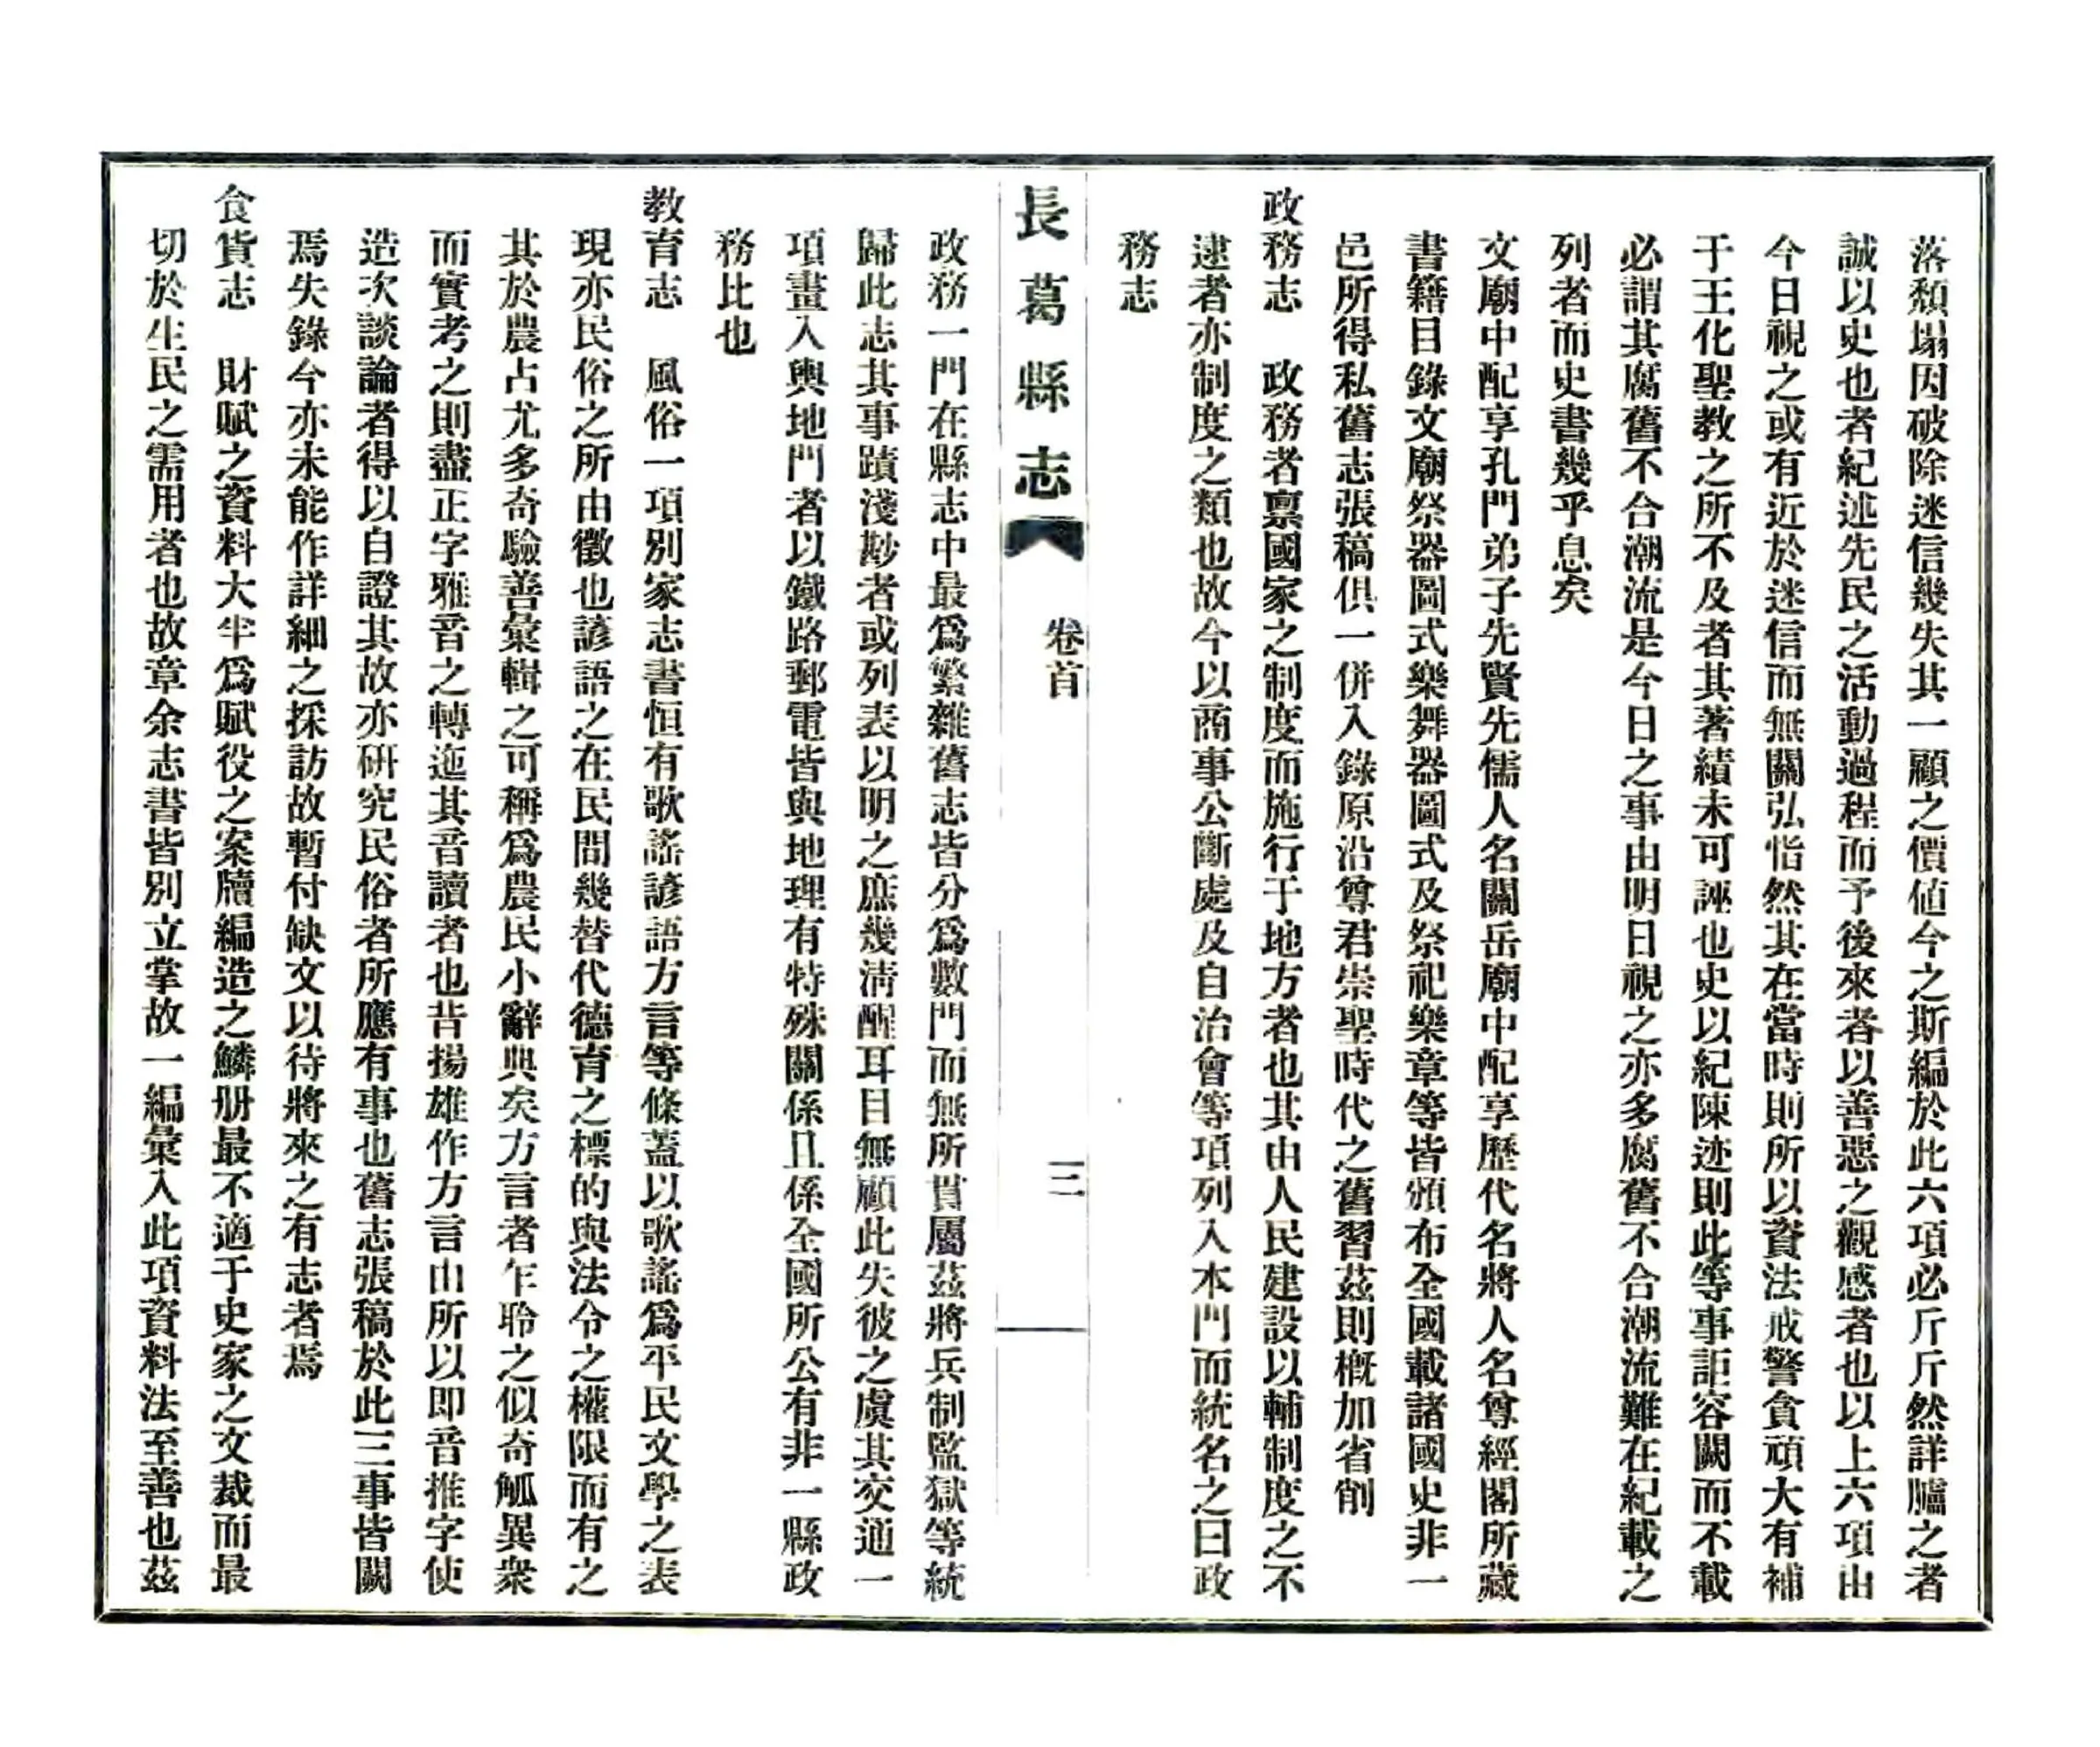 落頹塌因破除迷信幾失其一顧之價値今之斯編於此六項必斤斤然詳臚之者
誠以史也者紀述先民之活動過程而予後來者以善惡之觀感者也以上六項由
今日視之或有近於迷信而無關弘恉然其在當時則所以資法戒警貪頑大有補
于王化聖教之所不及者其著績未可誣也史以紀陳迹則此等事詎容闕而不載
必謂其腐舊不合潮流是今日之事由明日視之亦多腐舊不合潮流難在紀載之
列者而史書幾乎息矣
文廟中配享孔門弟子先賢先儒人名關岳廟中配享歷代名將人名尊經閣所藏
書籍目錄文廟祭器圖式樂舞器圖式及祭祀樂章等皆頒布全國載諸國史非一
邑所得私舊志張稿俱一併入錄原沿尊君崇聖時代之舊習茲則概加省削
政務志 政務者禀國家之制度而施行于地方者也其由人民建設以輔制度之不
逮者亦制度之類也故今以商事公斷處及自治會等項列入本門而統名之曰政
務志
長葛縣志 卷首 三
政務一門在縣志中最爲繁雜舊志皆分爲數門而無所貫屬茲將兵制監獄等統
歸此志其事蹟淺尠者或列表以明之庶幾淸醒耳目無顧此失彼之虞其交通一
項畫入輿地門者以鐵路郵電皆與地理有特殊關係且係全國所公有非一縣政
務比也
教育志 風俗一項別家志書恒有歌謠諺語方言等條蓋以歌謠爲平民文學之表
現亦民俗之所由徵也諺語之在民間幾替代德育之標的與法令之權限而有之
其於農占尤多奇驗善彙輯之可稱爲農民小辭典矣方言者乍聆之似奇觚異衆
而實考之則盡正字雅音之轉迤其音讀者也昔揚雄作方言由所以即音推字使
造次談論者得以自證其故亦硏究民俗者所應有事也舊志張稿於此三事皆闕
焉失錄今亦未能作詳細之採訪故暫付缺文以待將來之有志者焉
食貨志 財賦之資料大半爲賦役之案牘編造之鱗册最不適于史家之文裁而最
切於生民之需用者也故章余志書皆別立掌故一編彙入此項資料法至善也茲